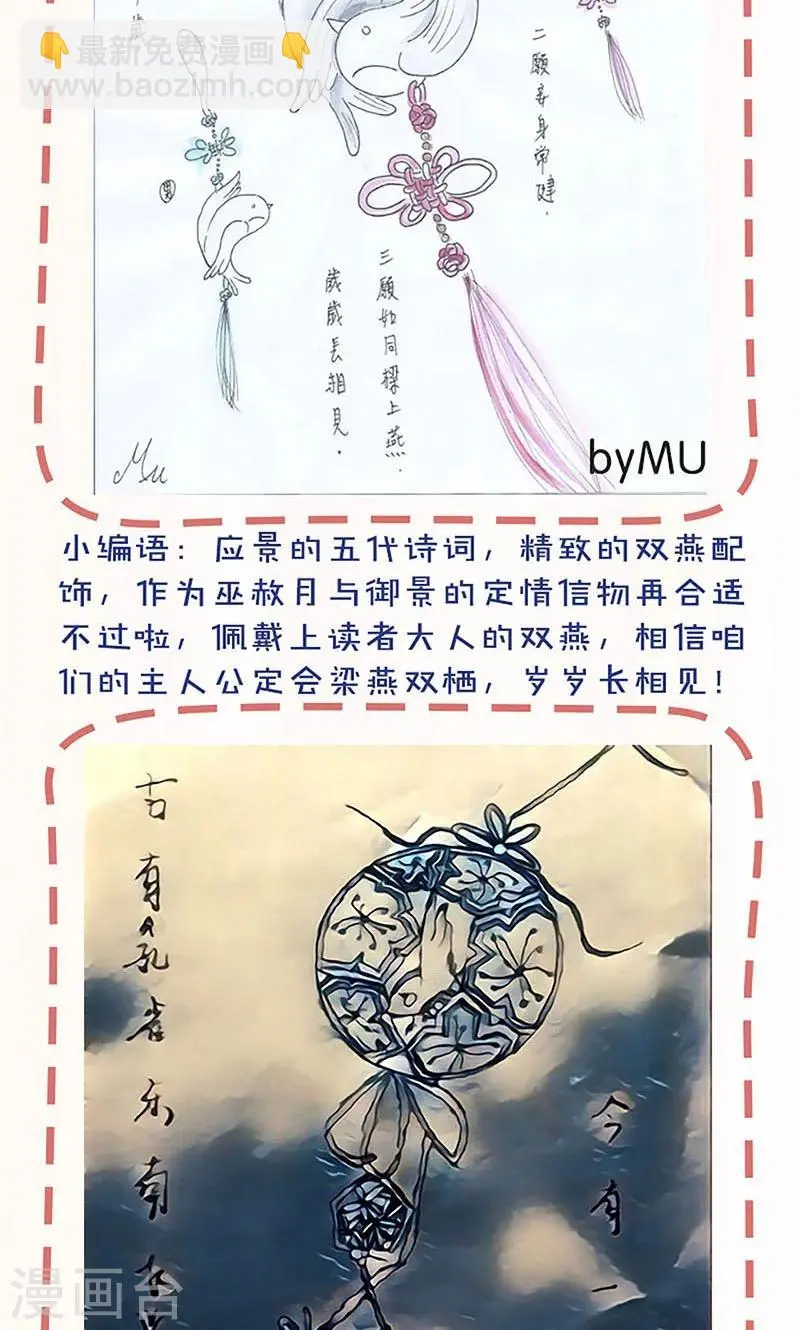 歲
最新免费漫画
www.baozimh.com
二願妾身常健.
三願如同樑上燕.
歲歲長相見.
Mu
byMU
小编语：应景的五代诗词，精致的双燕配
饰，作为巫赦月与御景的定情信物再合适
不过啦，佩戴上读者大人的双燕，相信咱
们的主人公定会梁燕双栖，岁岁长相见！
古有孔雀东南
今有一
漫画台